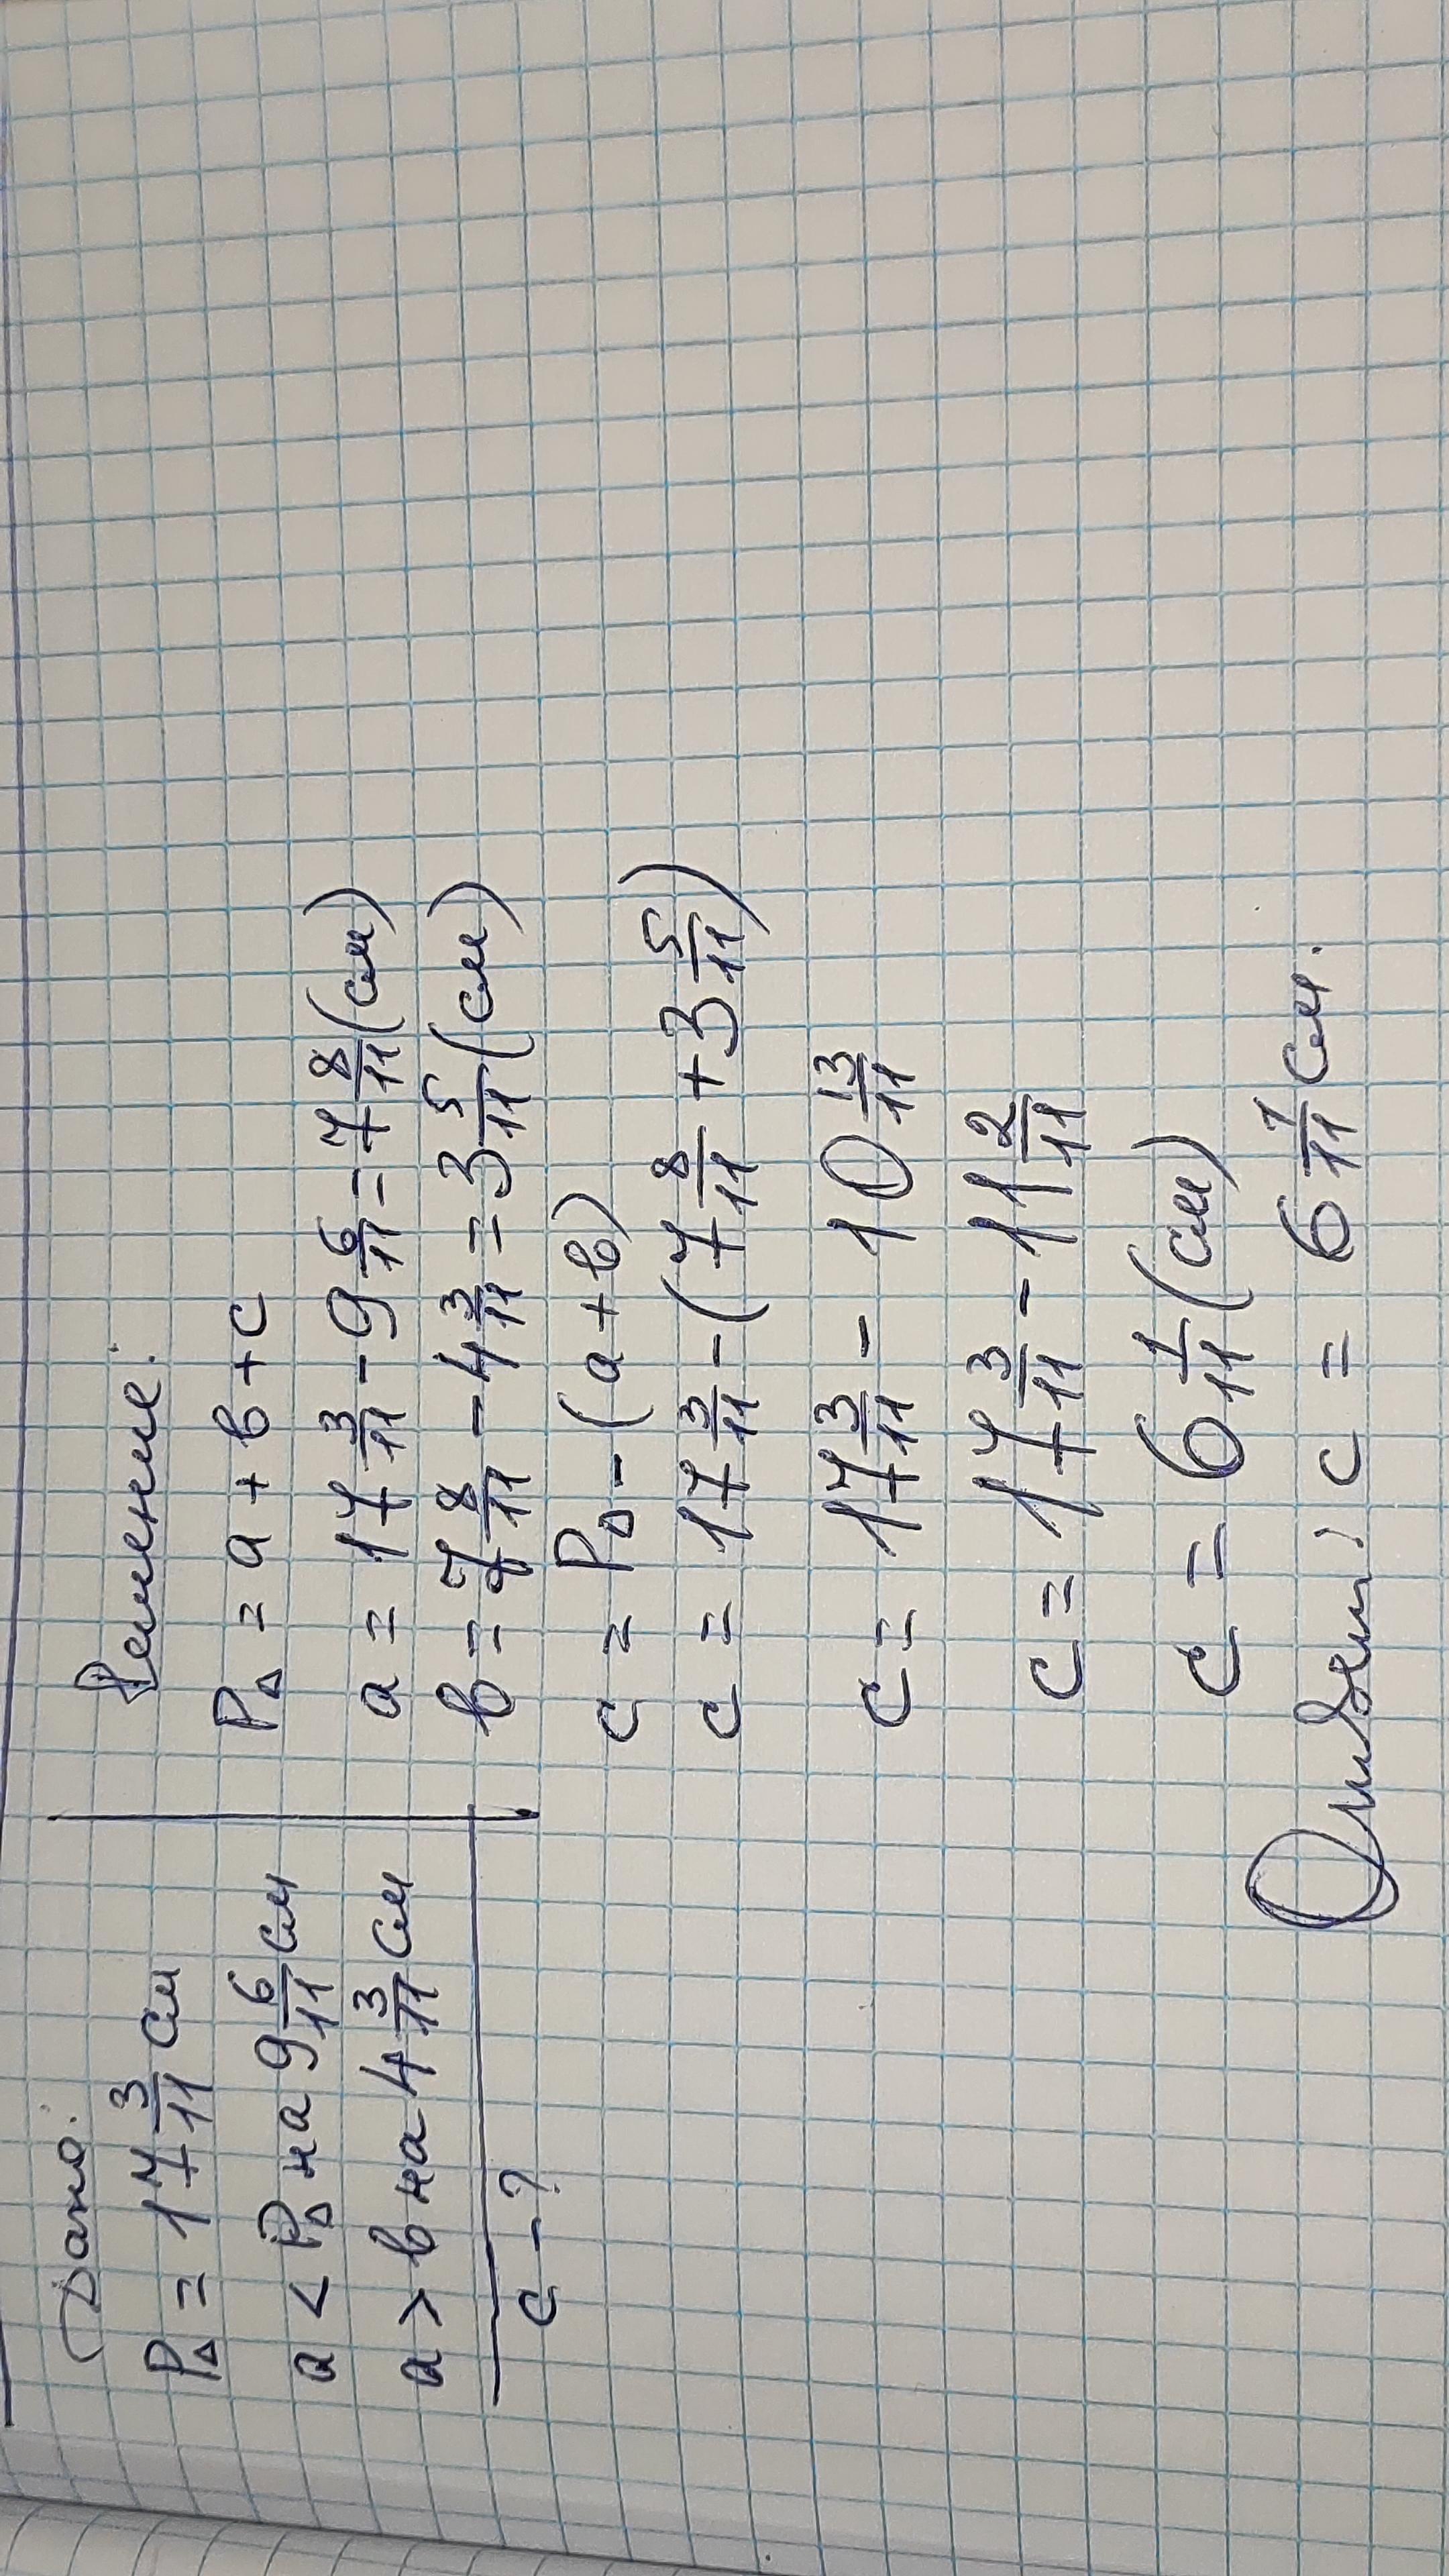 Дано:
P△ = 17 3/11 см
a < P△ на 9 6/11 см
a > в на 4 3/11 см
c - ?
Решение:
P△ = a + в + c
a = 17 3/11 - 9 6/11 = 7 8/11 (см)
в = 7 8/11 - 4 3/11 = 3 5/11 (см)
c = P△ - (a + в)
c = 17 3/11 - (7 8/11 + 3 5/11)
c = 17 3/11 - 10 13/11
c = 17 3/11 - 11 2/11
c = 6 1/11 (см)
Ответ: c = 6 1/11 см.